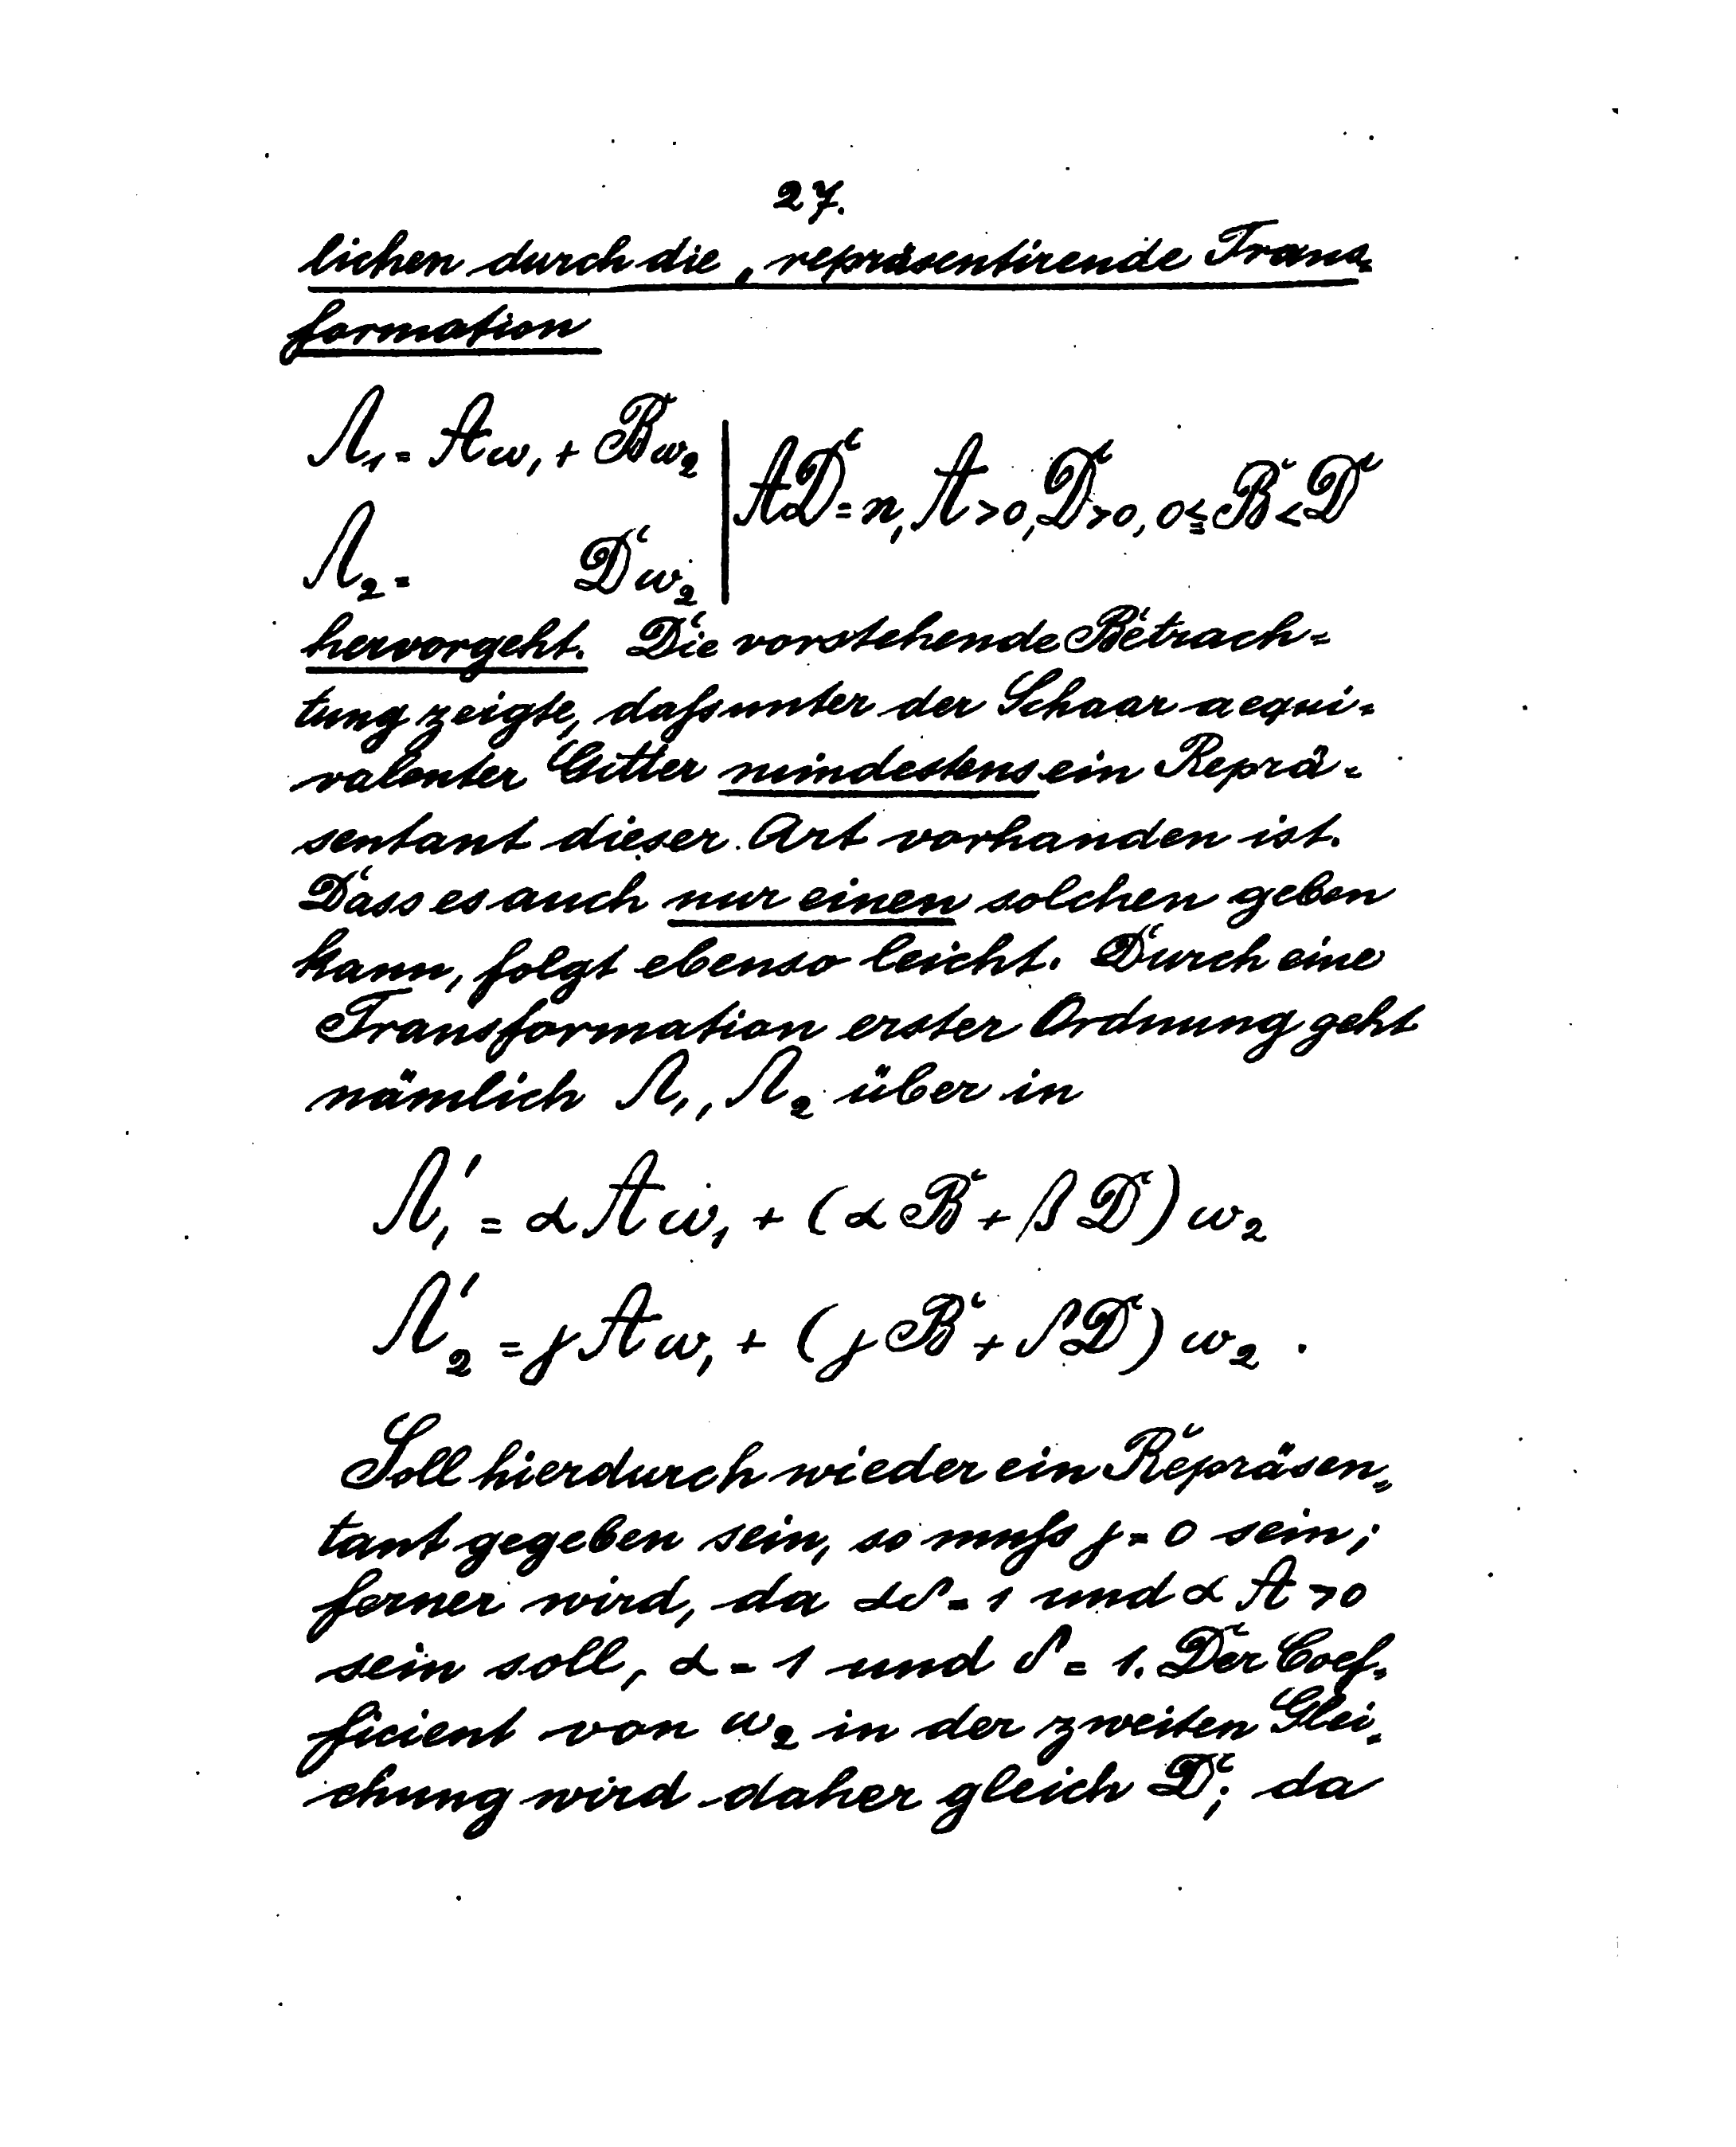 27.
lichen durch die „repräsentirende Trans-
formation
Λ₁ = Aω₁ + Bω₂ | AD = n, A > 0, D > 0, 0 ≤ B < D
Λ₂ = Dω₂
hervorgeht. Die vorstehende Betrach-
tung zeigte, daſs unter der Schaar aequi-
valenter Gitter mindestens ein Reprä-
sentant dieser Art vorhanden ist.
Dass es auch nur einen solchen geben
kann, folgt ebenso leicht. Durch eine
Transformation erster Ordnung geht
nämlich Λ₁, Λ₂ über in
Λ₁' = αAω₁ + (αB + βD)ω₂
Λ₂' = γAω₁ + (γB + δD)ω₂.
Soll hierdurch wieder ein Repräsen-
tant gegeben sein, so muſs γ = 0 sein;
ferner wird, da αδ = 1 und αA > 0
sein soll, α = 1 und δ = 1. Der Coef-
ficient von ω₂ in der zweiten Glei-
chung wird daher gleich D; da